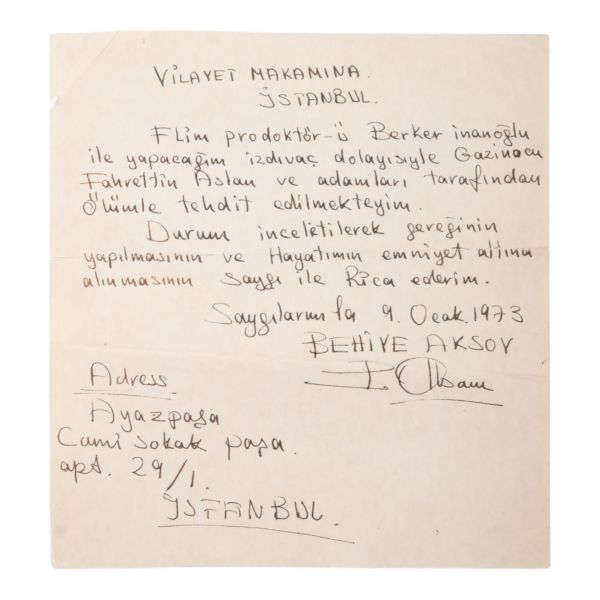 VİLAYET MAKAMINA.
İSTANBUL.
FLim prodoktör-ü Berker inanoğlu
ile yapacağım izdivaç dolayısiyle Gazinocu
Fahrettin Aslan ve adamları tarafından
Ölümle tehdit edilmekteyim.
Durum inceletilerek gereğinin
yapılmasının ve Hayatımın emniyet altına
alınmasının saygı ile Rica ederim.
Saygılarımla 9. Ocak.1973
BEHİYE AKSOY
Adress
Ayazpaşa
Cami sokak paşa.
apt. 29/1.
İSTANBUL.